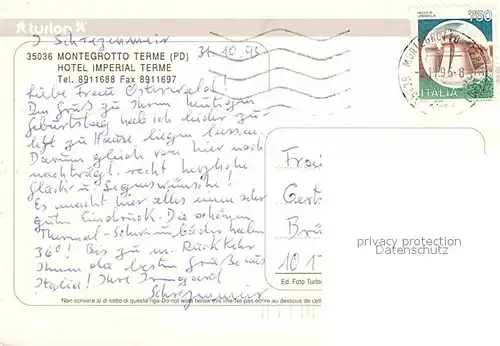 turlon
J Schregenmeir 31.10.95
35036 MONTEGROTTO TERME (PD)
HOTEL IMPERIAL TERME
Tel. 8911688 Fax 8911697
Liebe Frau Osterwald!
Den Gruß zu Ihrem heutigen
Geburtstag hab ich leider zu
zu Hause liegen lassen.
Darum gleich von hier noch
nachträgl. recht herzliche
Glück u. Segenswünsche!
Es macht hier alles einen sehr
guten Eindruck. Die schönen
Thermal-Schwimmbäder haben
36°! Bis zu m. Rückkehr
Ihnen die besten Grüße aus
Italia! Ihre Irmgard
750
ITALIA
Frau
Gert
10 1
privacy protection
Datenschutz
Ed. Foto Turlon
Non scrivere al di sotto di questa riga-Do not write below this line-Ne pas écrire au dessous de cette